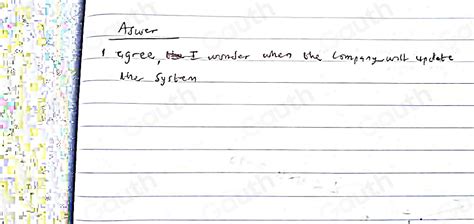 Aswer
I agree, the I wonder when the Company will update
ther System